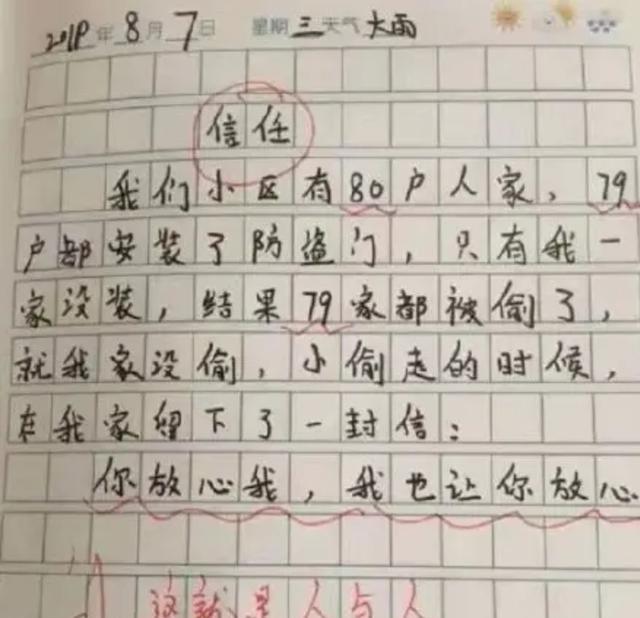 2019年8月7日 星期三天气大雨
信任
我们小区有80户人家，79
户都安装了防盗门，只有我一
家没装，结果79家都被偷了，
就我家没偷，小偷走的时候，
在我家留下了一封信：
你放心我，我也让你放心
这就是人与人